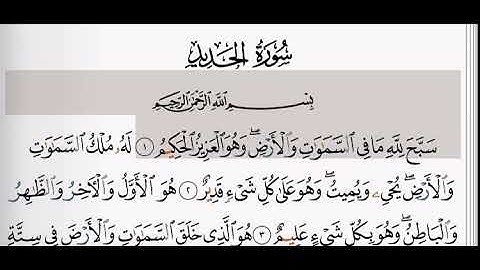 سُورَةُ الحَدِيدِ
بِسْمِ ٱللَّهِ ٱلرَّحْمَٰنِ ٱلرَّحِيمِ
سَبَّحَ لِلَّهِ مَا فِي ٱلسَّمَٰوَٰتِ وَٱلْأَرْضِۖ وَهُوَ ٱلْعَزِيزُ ٱلْحَكِيمُ ١ لَهُۥ مُلْكُ ٱلسَّمَٰوَٰتِ
وَٱلْأَرْضِۖ يُحْيِۦ وَيُمِيتُۖ وَهُوَ عَلَىٰ كُلِّ شَيْءٖ قَدِيرٌ ٢ هُوَ ٱلْأَوَّلُ وَٱلْأٓخِرُ وَٱلظَّٰهِرُ
وَٱلْبَاطِنُۖ وَهُوَ بِكُلِّ شَيْءٍ عَلِيمٌ ٣ هُوَ ٱلَّذِي خَلَقَ ٱلسَّمَٰوَٰتِ وَٱلْأَرْضَ فِي سِتَّةِ